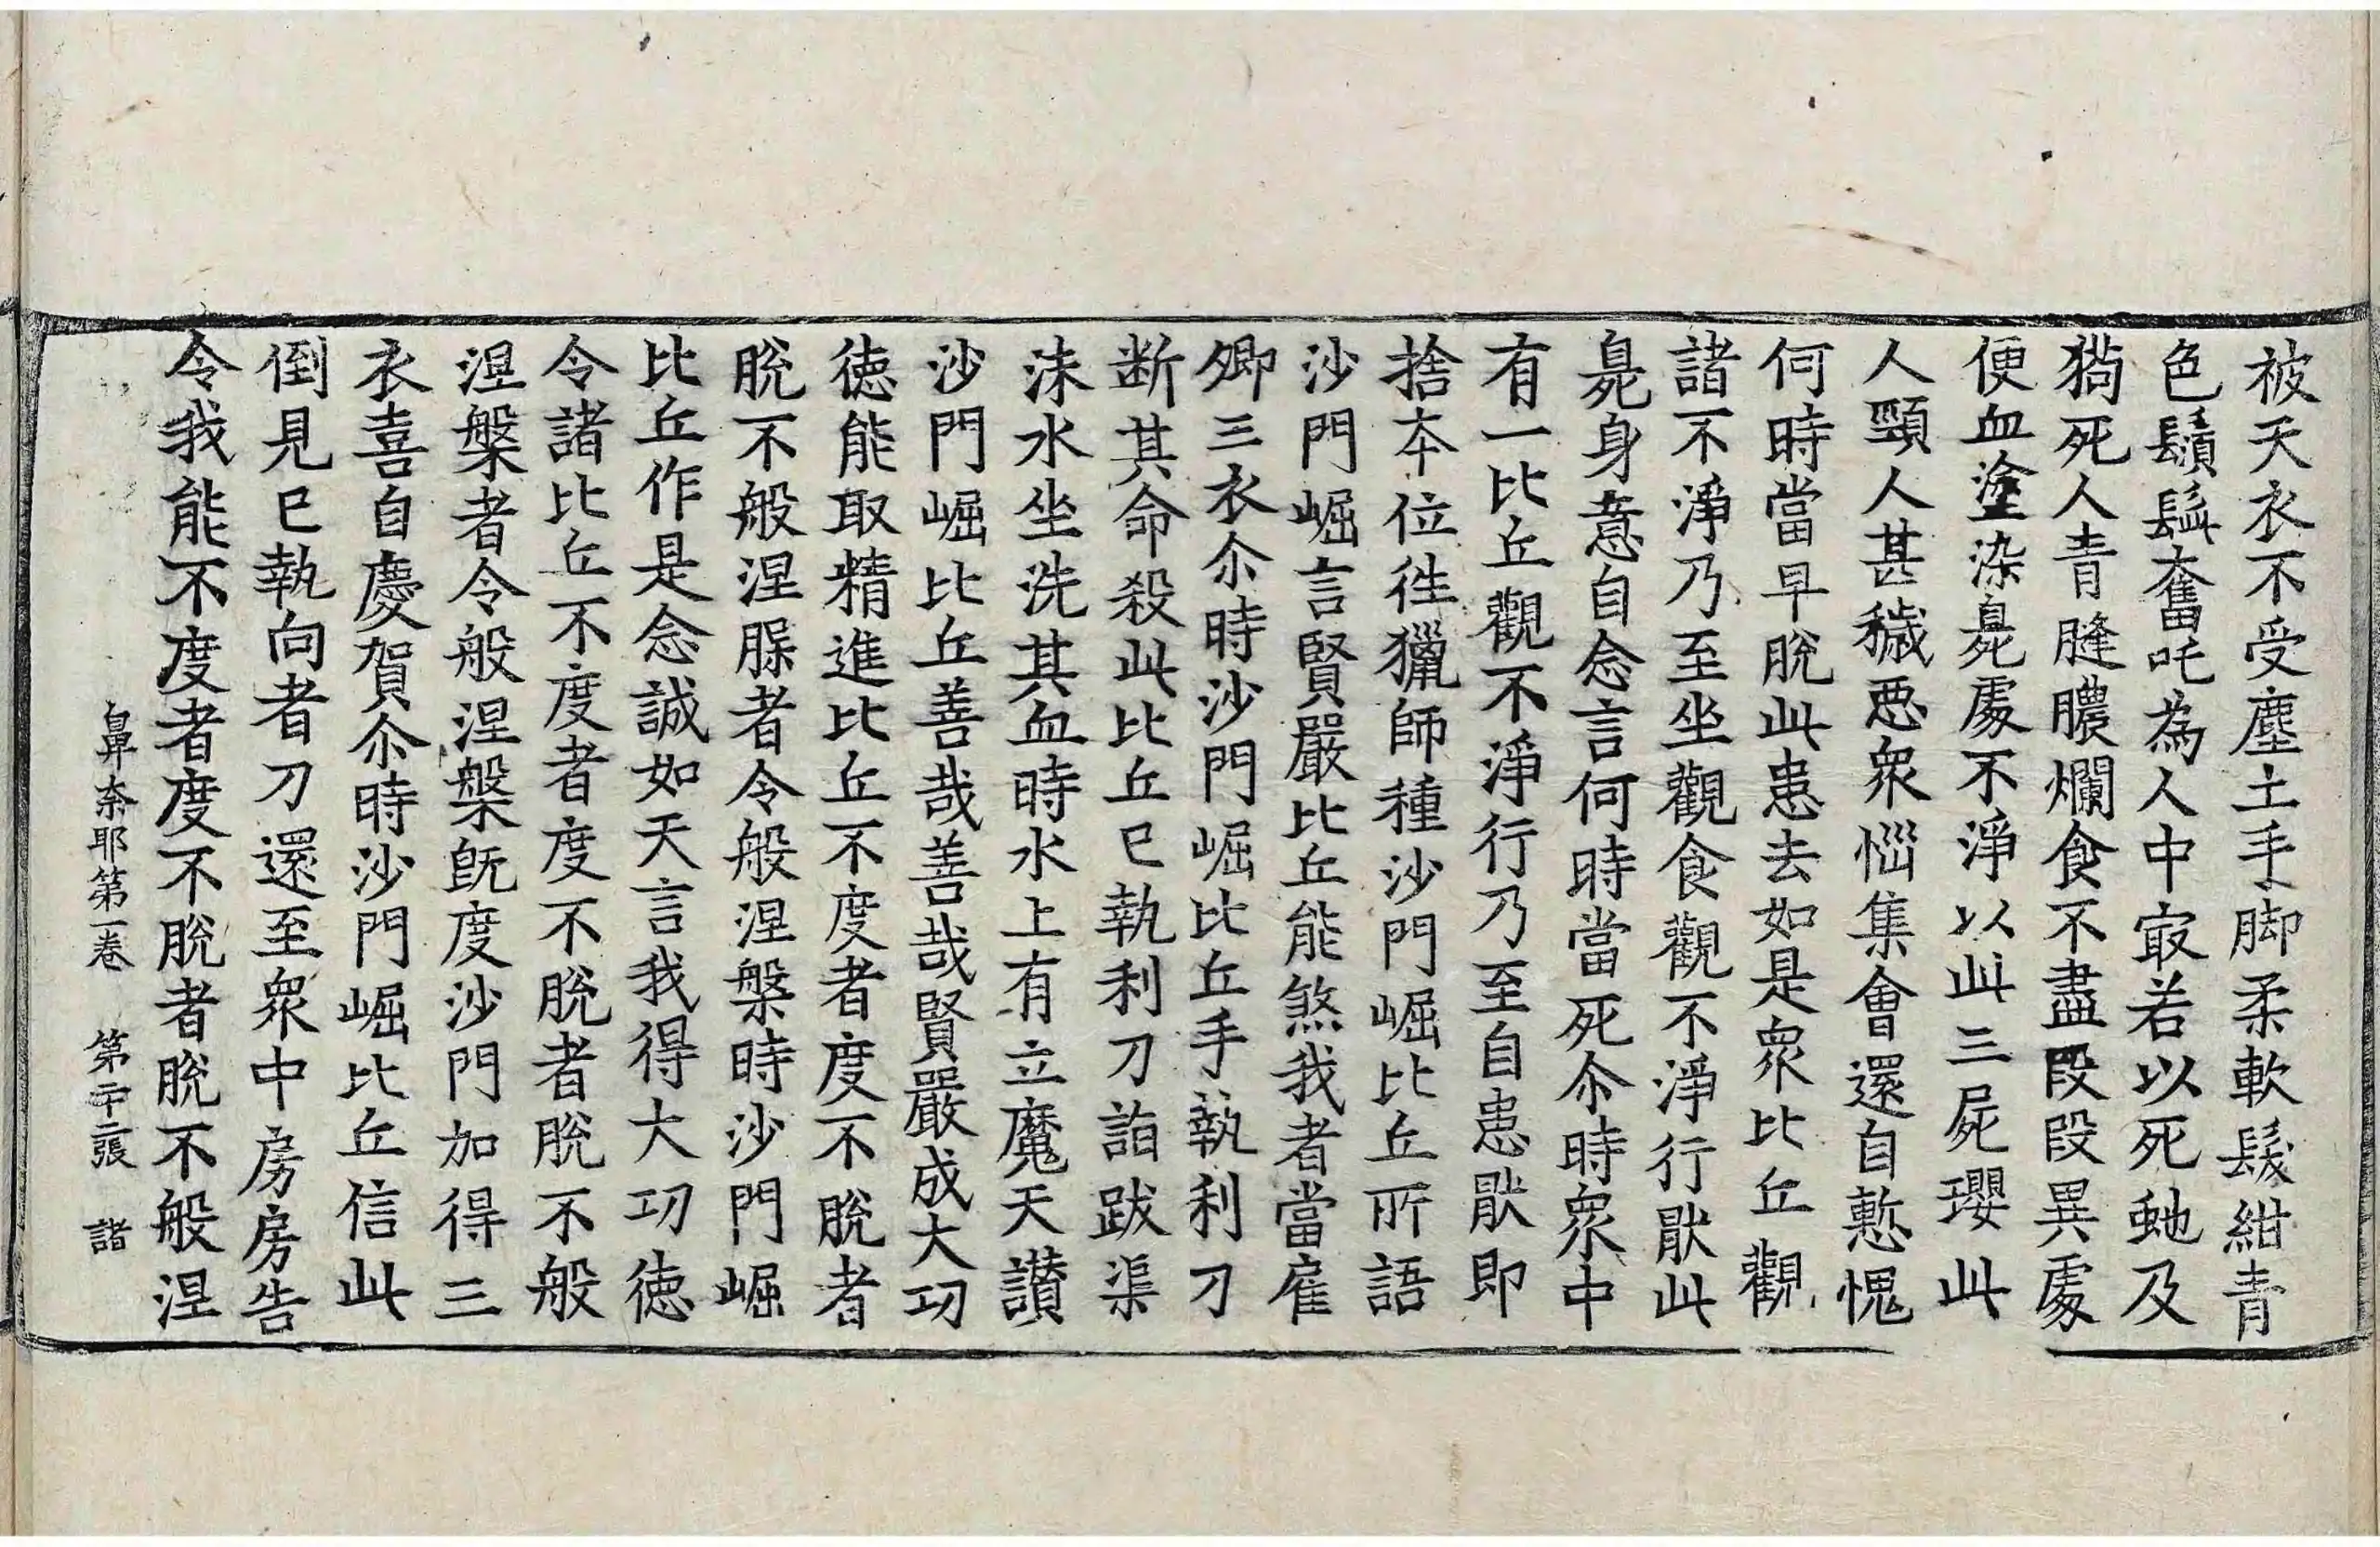 被天衣不受塵土手脚柔軟髮紺青
色鬚髯奮吒為人中㝡若以死虵及
狗死人青膖膿爛食不盡段段異處
便血塗染臰處不淨以此三屍瓔此
人頸人甚穢惡衆惱集會還自慙愧
何時當早脫此患去如是衆比丘觀
諸不淨乃至坐觀食觀不淨行猒此
臰身意自念言何時當死尒時衆中
有一比丘觀不淨行乃至自患猒即
捨本位徃獵師種沙門崛比丘所語
沙門崛言賢嚴比丘能煞我者當雇
卿三衣尒時沙門崛比丘手執利刀
断其命殺此比丘已執利刀詣跋渠
沫水坐洗其血時水上有立魔天讃
沙門崛比丘善哉善哉賢嚴成大功
徳能取精進比丘不度者度不脫者
脫不般涅槃者令般涅槃時沙門崛
比丘作是念誠如天言我得大功徳
令諸比丘不度者度不脫者脫不般
涅槃者令般涅槃旣度沙門加得三
衣喜自慶賀尒時沙門崛比丘信此
倒見已執向者刀還至衆中房房告
令我能不度者度不脫者脫不般涅
鼻奈耶第一卷 第二十二張 諸